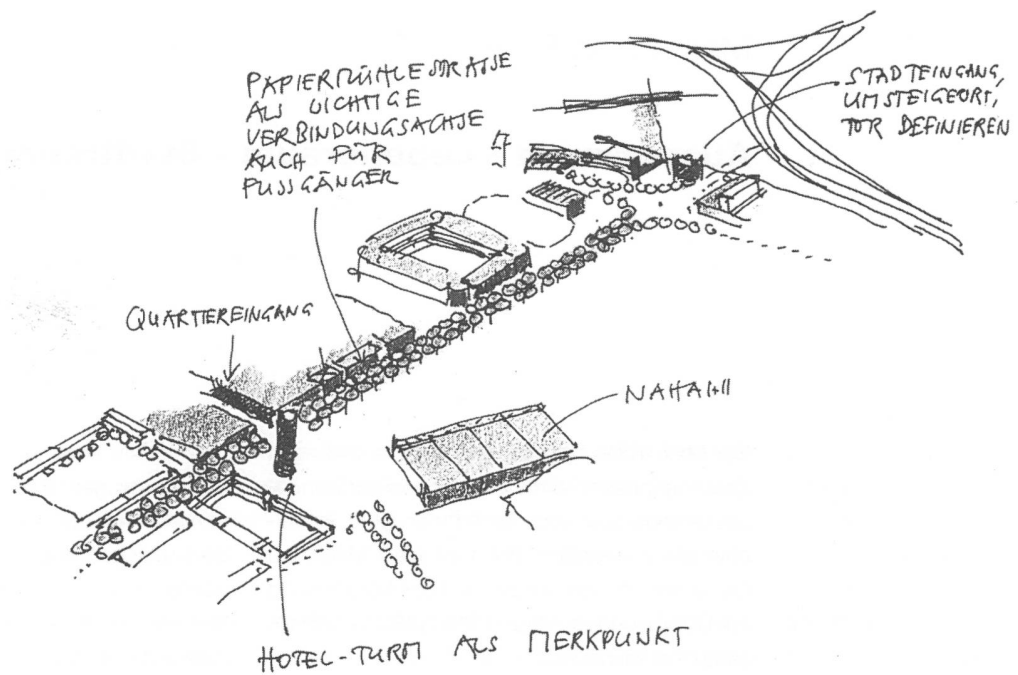 PAPIERMÜHLESTRASSE
ALS WICHTIGE
VERBINDUNGSACHSE
AUCH FÜR
FUSSGÄNGER
STADTEINGANG,
UMSTEIGEORT,
TOR DEFINIEREN
QUARTIEREINGANG
HOTEL-TURM ALS MERKPUNKT